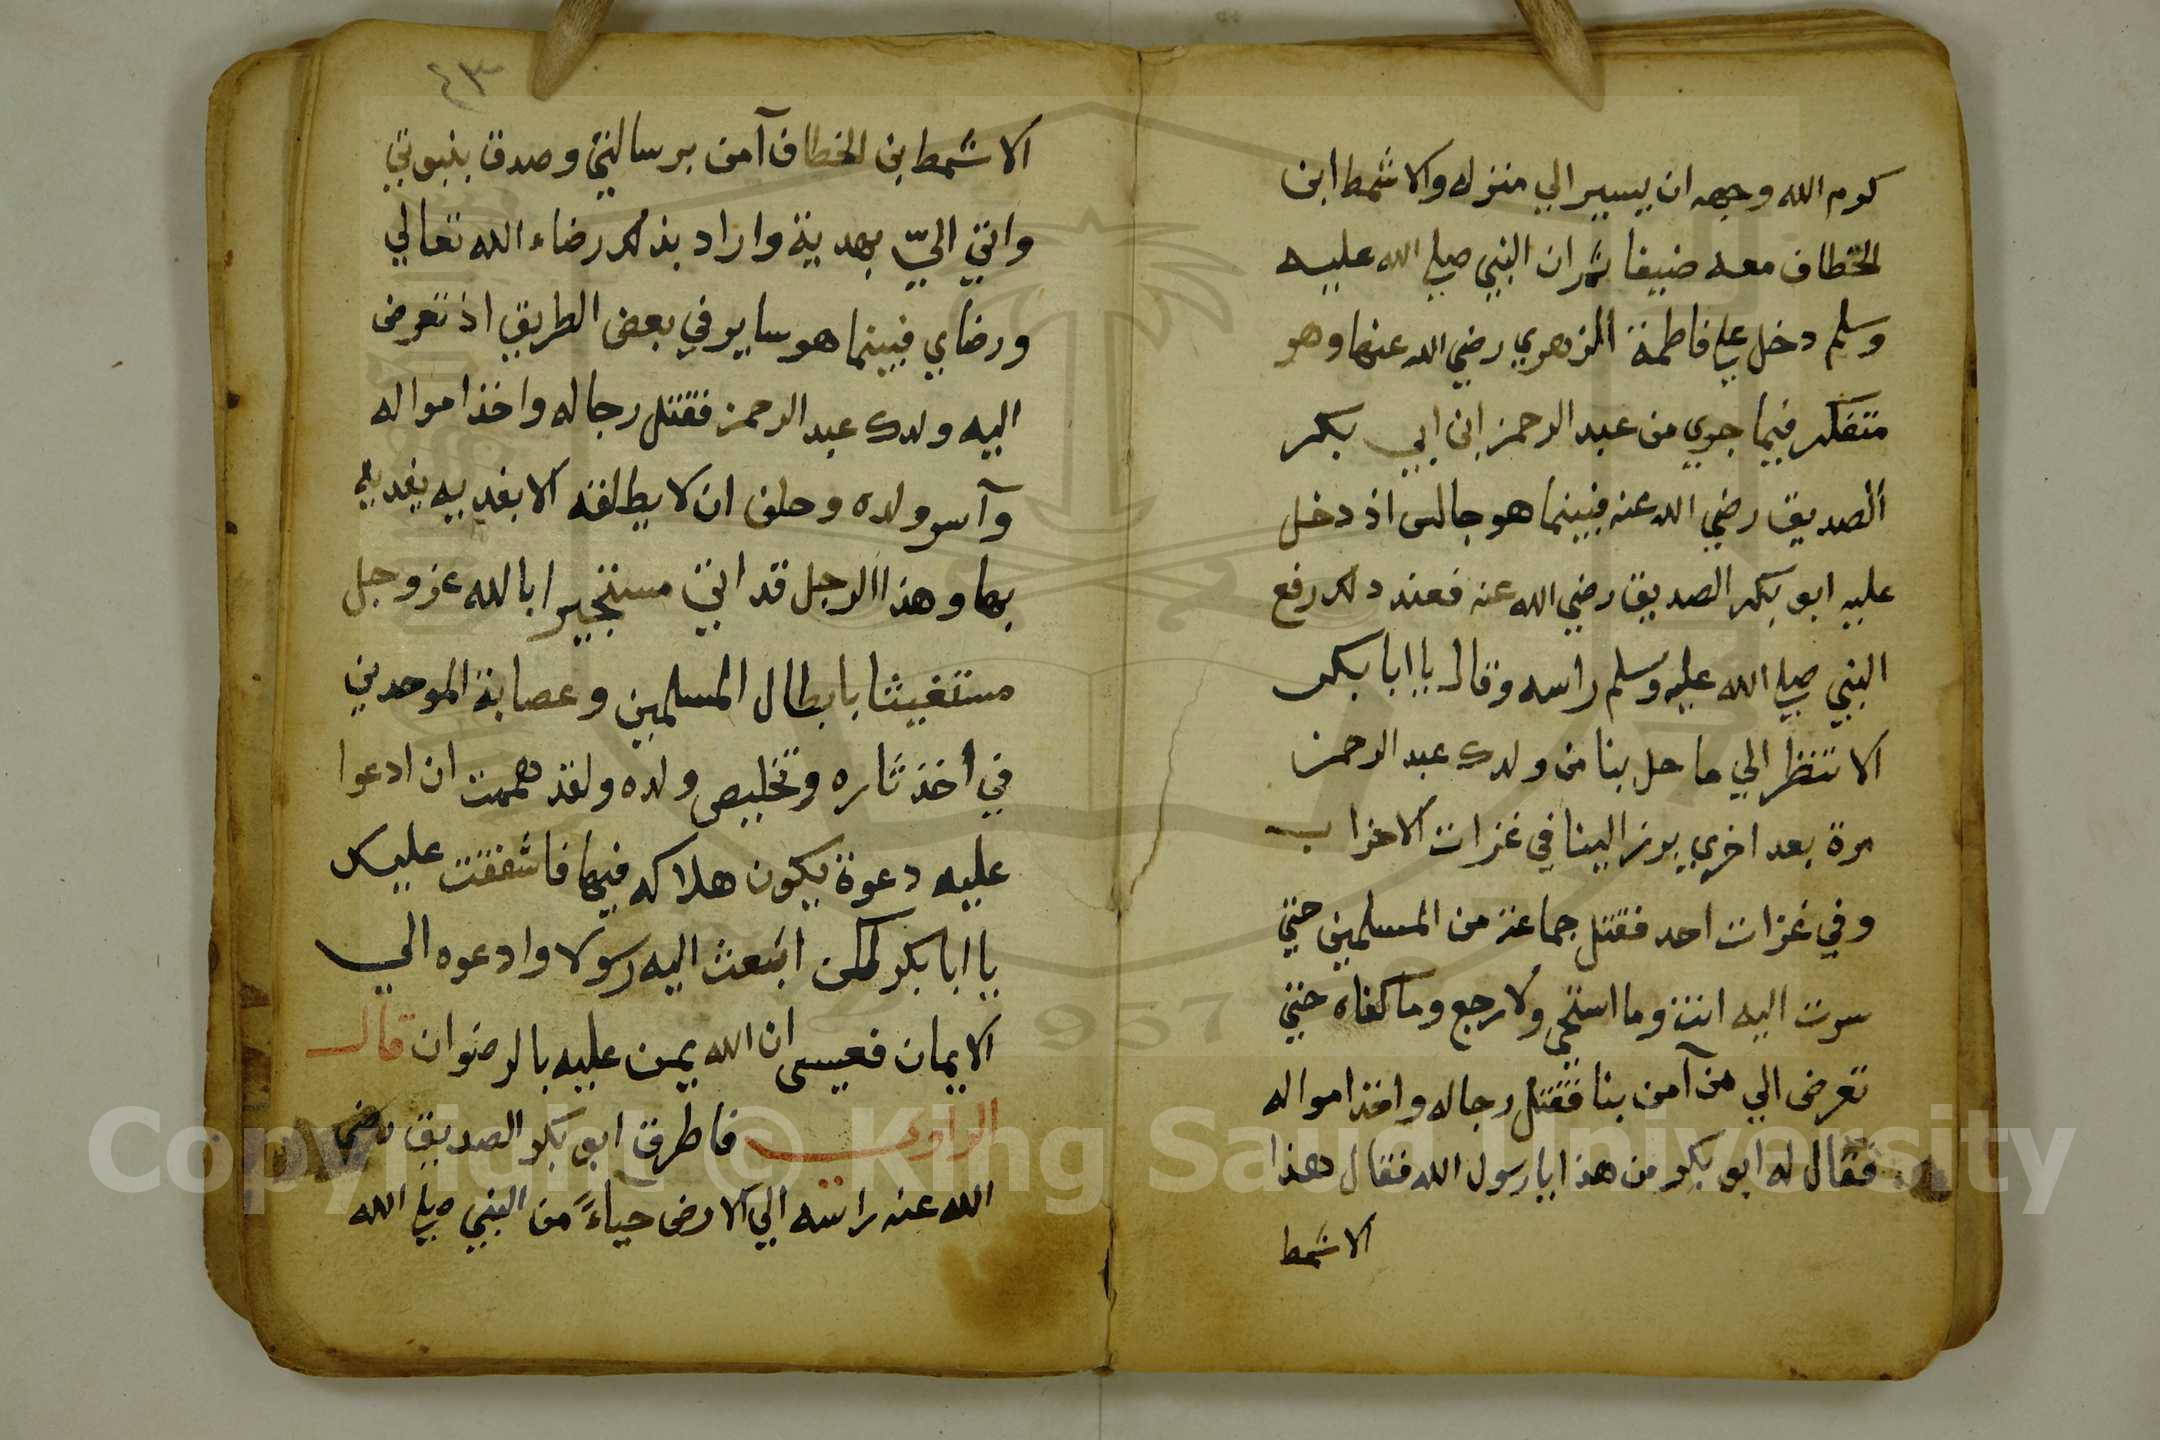 كرم الله وجهه ان يسير الي منزله والاشمط ابن
الخطاف معه ضيفا ثم ان النبي صلي الله عليه
وسلم دخل علي فاطمة الزهري رضي الله عنها وهو
متفكر فيما جري من عبد الرحمن ابن ابي بكر
الصديق رضي الله عنه فبينما هو جالس اذ دخل
عليه ابو بكر الصديق رضي الله عنه فعند ذلك رفع
النبي صلي الله عليه وسلم راسه وقال يا ابا بكر
الا تنظر الي ما حل بنا من ولدك عبد الرحمن
مرة بعد اخري برز الينا في غزات الاحزاب
وفي غزات احد فقتل جماعة من المسلمين حتي
سرت اليه انت وما استحي ولا رجع وما كفاه حتي
تعرض الي من آمن بنا فقتل رجاله واخذ امواله
فقال له ابو بكر من هذا يا رسول الله فقال هذا
الاشمط
٤٣
الاشمط بن الخطاف آمن برسالتي وصدق بنبوتي
واتي اليّ بهدية واراد بذلك رضاء الله تعالي
ورضاي فبينما هو ساير في بعض الطريق اذ تعرض
اليه ولدك عبد الرحمن فقتل رجاله واخذ امواله
وآسر ولده وحلف ان لا يطلقه الا بفديه يفديه
بها وهذا الرجل قد اتي مستجيرا بالله عز وجل
مستغيثا بابطال المسلمين وعصابة الموحدين
في أخذ ثاره وتخليص ولده ولقد هممت ان ادعوا
عليه دعوة يكون هلاكه فيها فاشفقت عليك
يا ابا بكر لكن ابعث اليه رسولا وادعوه الي
الايمان فعيسي ان الله يمن عليه بالرضوان قال
الراوي فاطرق ابو بكر الصديق رضي
الله عنه راسه الي الارض حياءً من النبي صلي الله
Copyright © King Saud University
1957